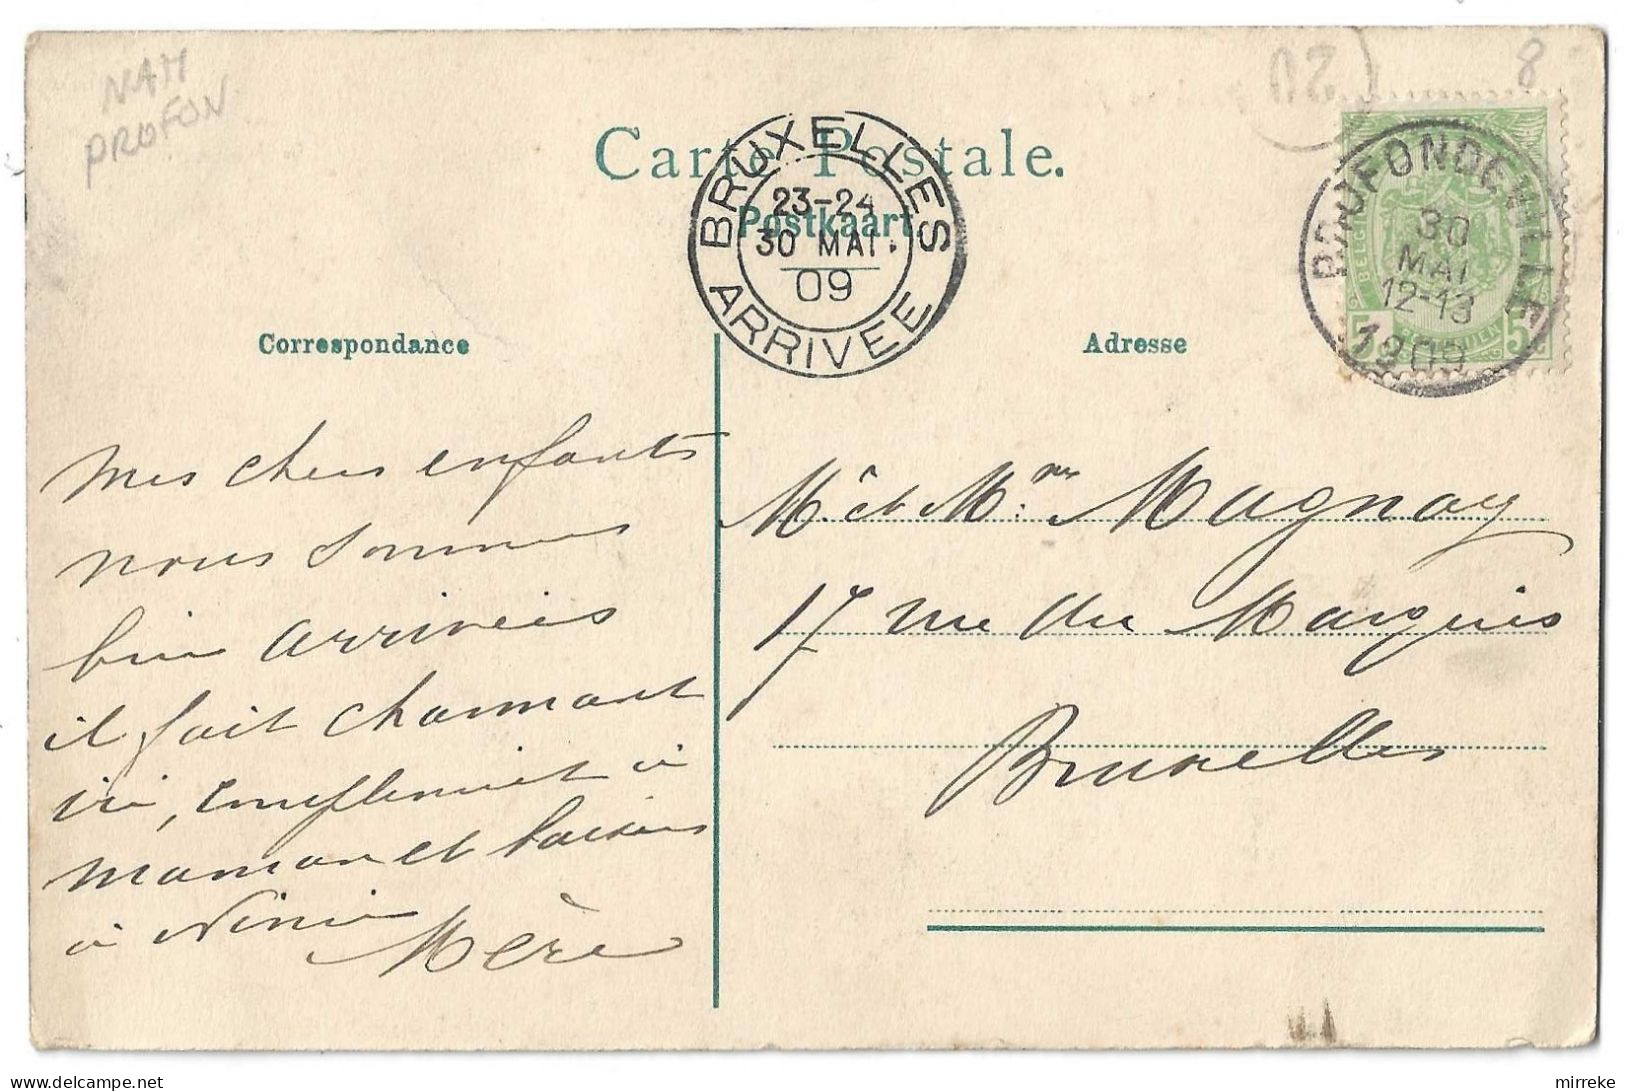 NAM
PROFON
8
20
Carte Postale.
Postkaart.
BRUXELLES
23-24
30 MAI.
09
ARRIVEE
PROFONDEVILLE
30
MAI
12-13
1909
5 5
Correspondance
Adresse
Mes chers enfants
nous sommes
bien arrivées
il fait charmant
ici, compliment à
maman et baisers
à Ninie
Mère
Mr et Mme Magnay
17 rue du Marquis
Bruxelles
mirreke